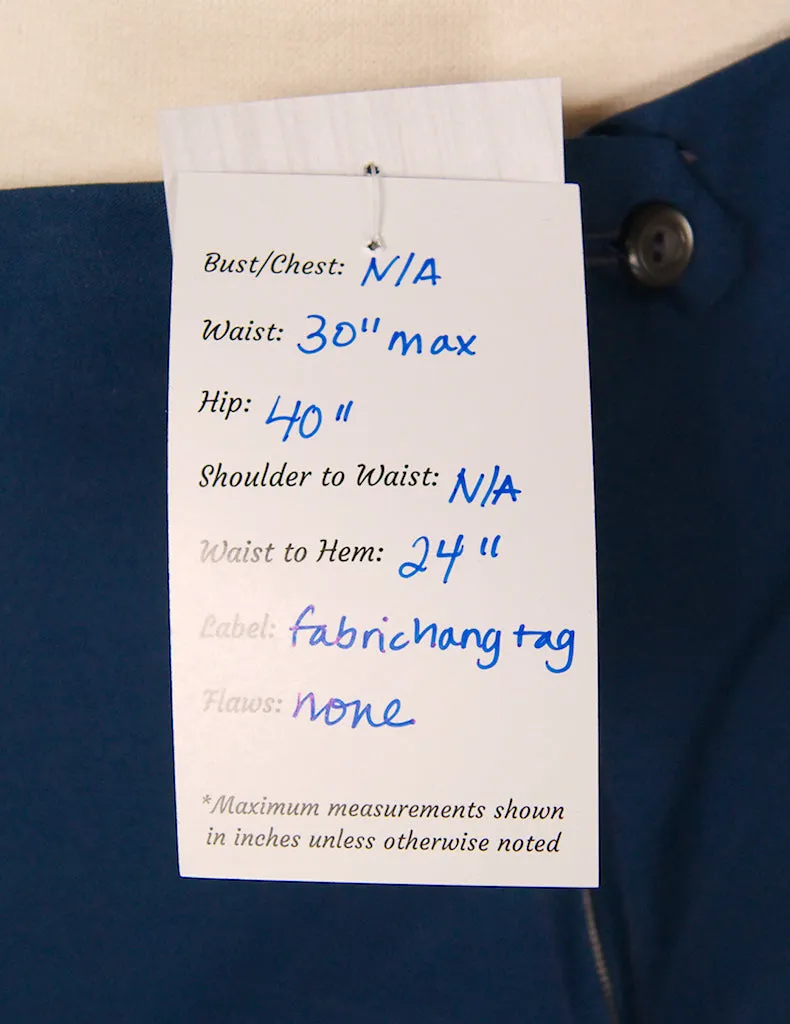 Bust/Chest: N/A
Waist: 30" max
Hip: 40"
Shoulder to Waist: N/A
Waist to Hem: 24"
Label: fabric hang tag
Flaws: none
*Maximum measurements shown
in inches unless otherwise noted